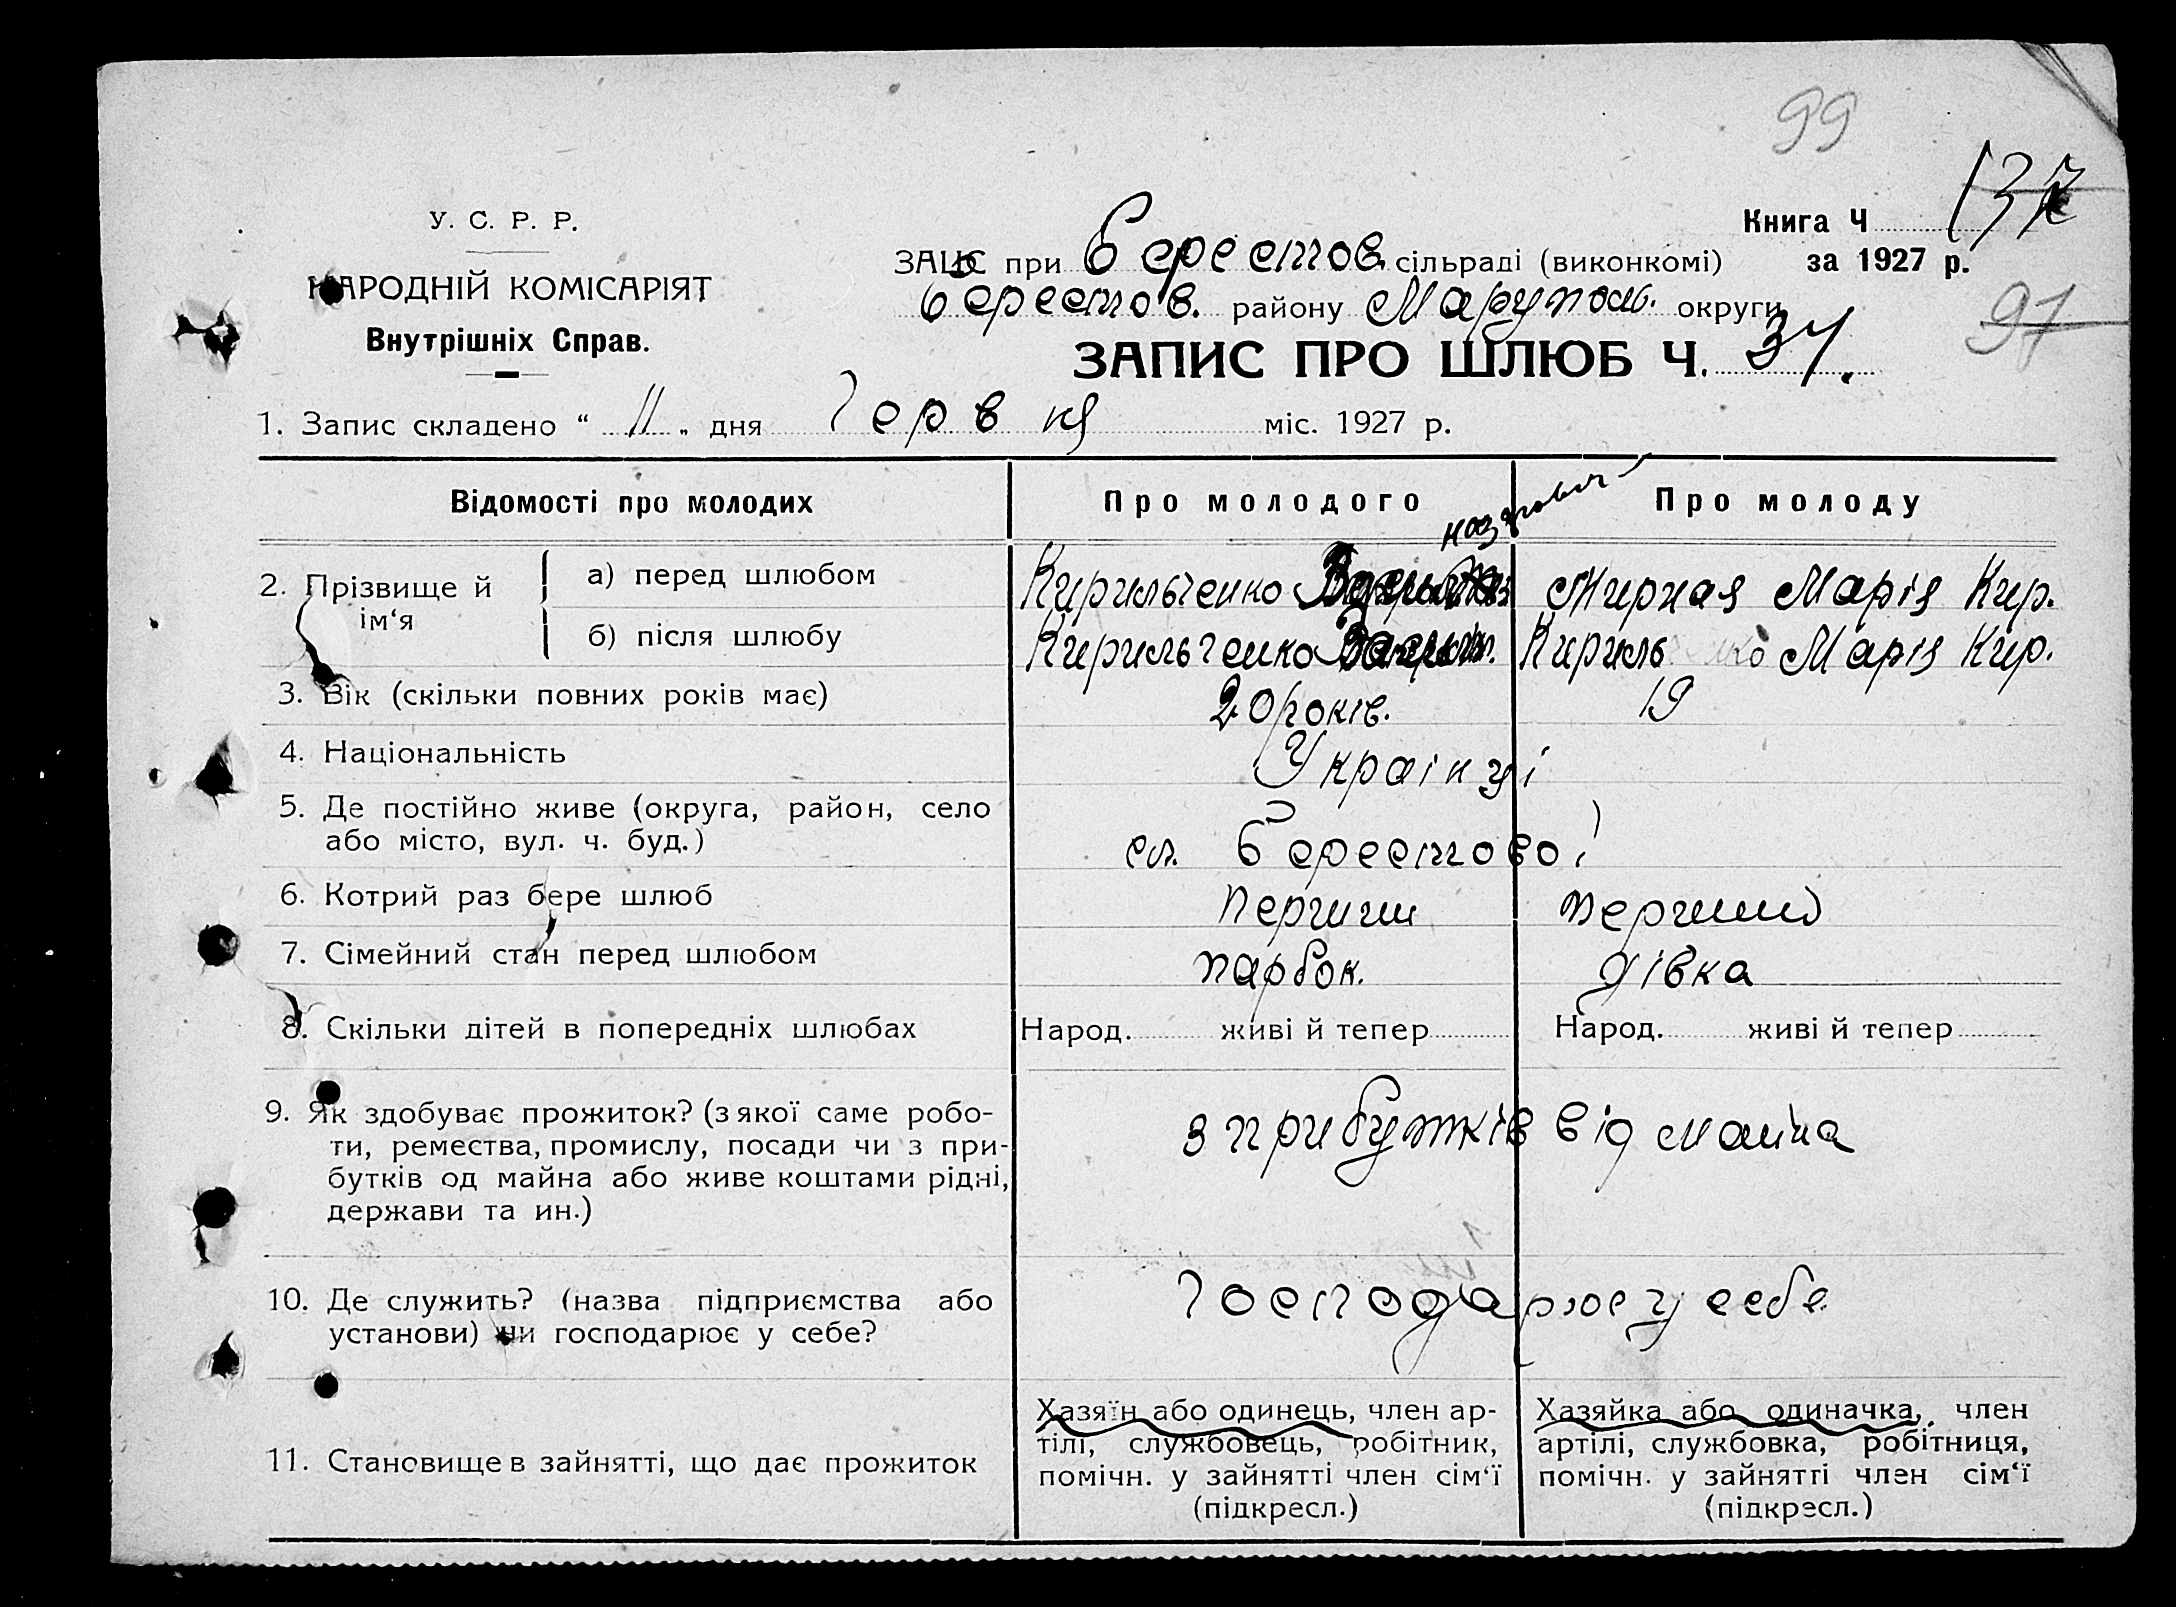 99
137
У. С. Р. Р.
Книга Ч
ЗАЦС при Берестов. сільраді (виконкомі) за 1927 р.
НАРОДНІЙ КОМІСАРІЯТ
Берестов. району Маруполь. округи
97
Внутрішніх Справ.
ЗАПИС ПРО ШЛЮБ Ч. 34.
1. Запис складено “ 11 „ дня Червня міс. 1927 р.
Відомості про молодих Про молодого Про молоду
2. Прізвище й ім‘я
а) перед шлюбом Кирильченко Жирная Марія Кир.
б) після шлюбу Кирильченко Кириль ко Марія Кир.
3. Вік (скільки повних років має) 20 років. 19
4. Національність Украінці
5. Де постійно живе (округа, район, село
або місто, вул. ч. буд.) сл. Берестовоі
6. Котрий раз бере шлюб Перший перший
7. Сімейний стан перед шлюбом парбок. дівка
8. Скільки дітей в попередніх шлюбах Народ. живі й тепер Народ. живі й тепер
9. Як здобуває прожиток? (з якої саме робо-
ти, ремества, промислу, посади чи з при-
бутків од майна або живе коштами рідні,
держави та ин.)
з прибутків від майна
10. Де служить? (назва підприємства або
установи) чи господарює у себе?
господарює у себе
11. Становище в зайнятті, що дає прожиток
Хазяїн або одинець, член ар-
тілі, службовець, робітник,
помічн. у зайнятті член сім‘ї
(підкресл.)
Хазяйка або одиначка, член
артілі, службовка, робітниця,
помічн. у зайнятті член сім‘ї
(підкресл.)